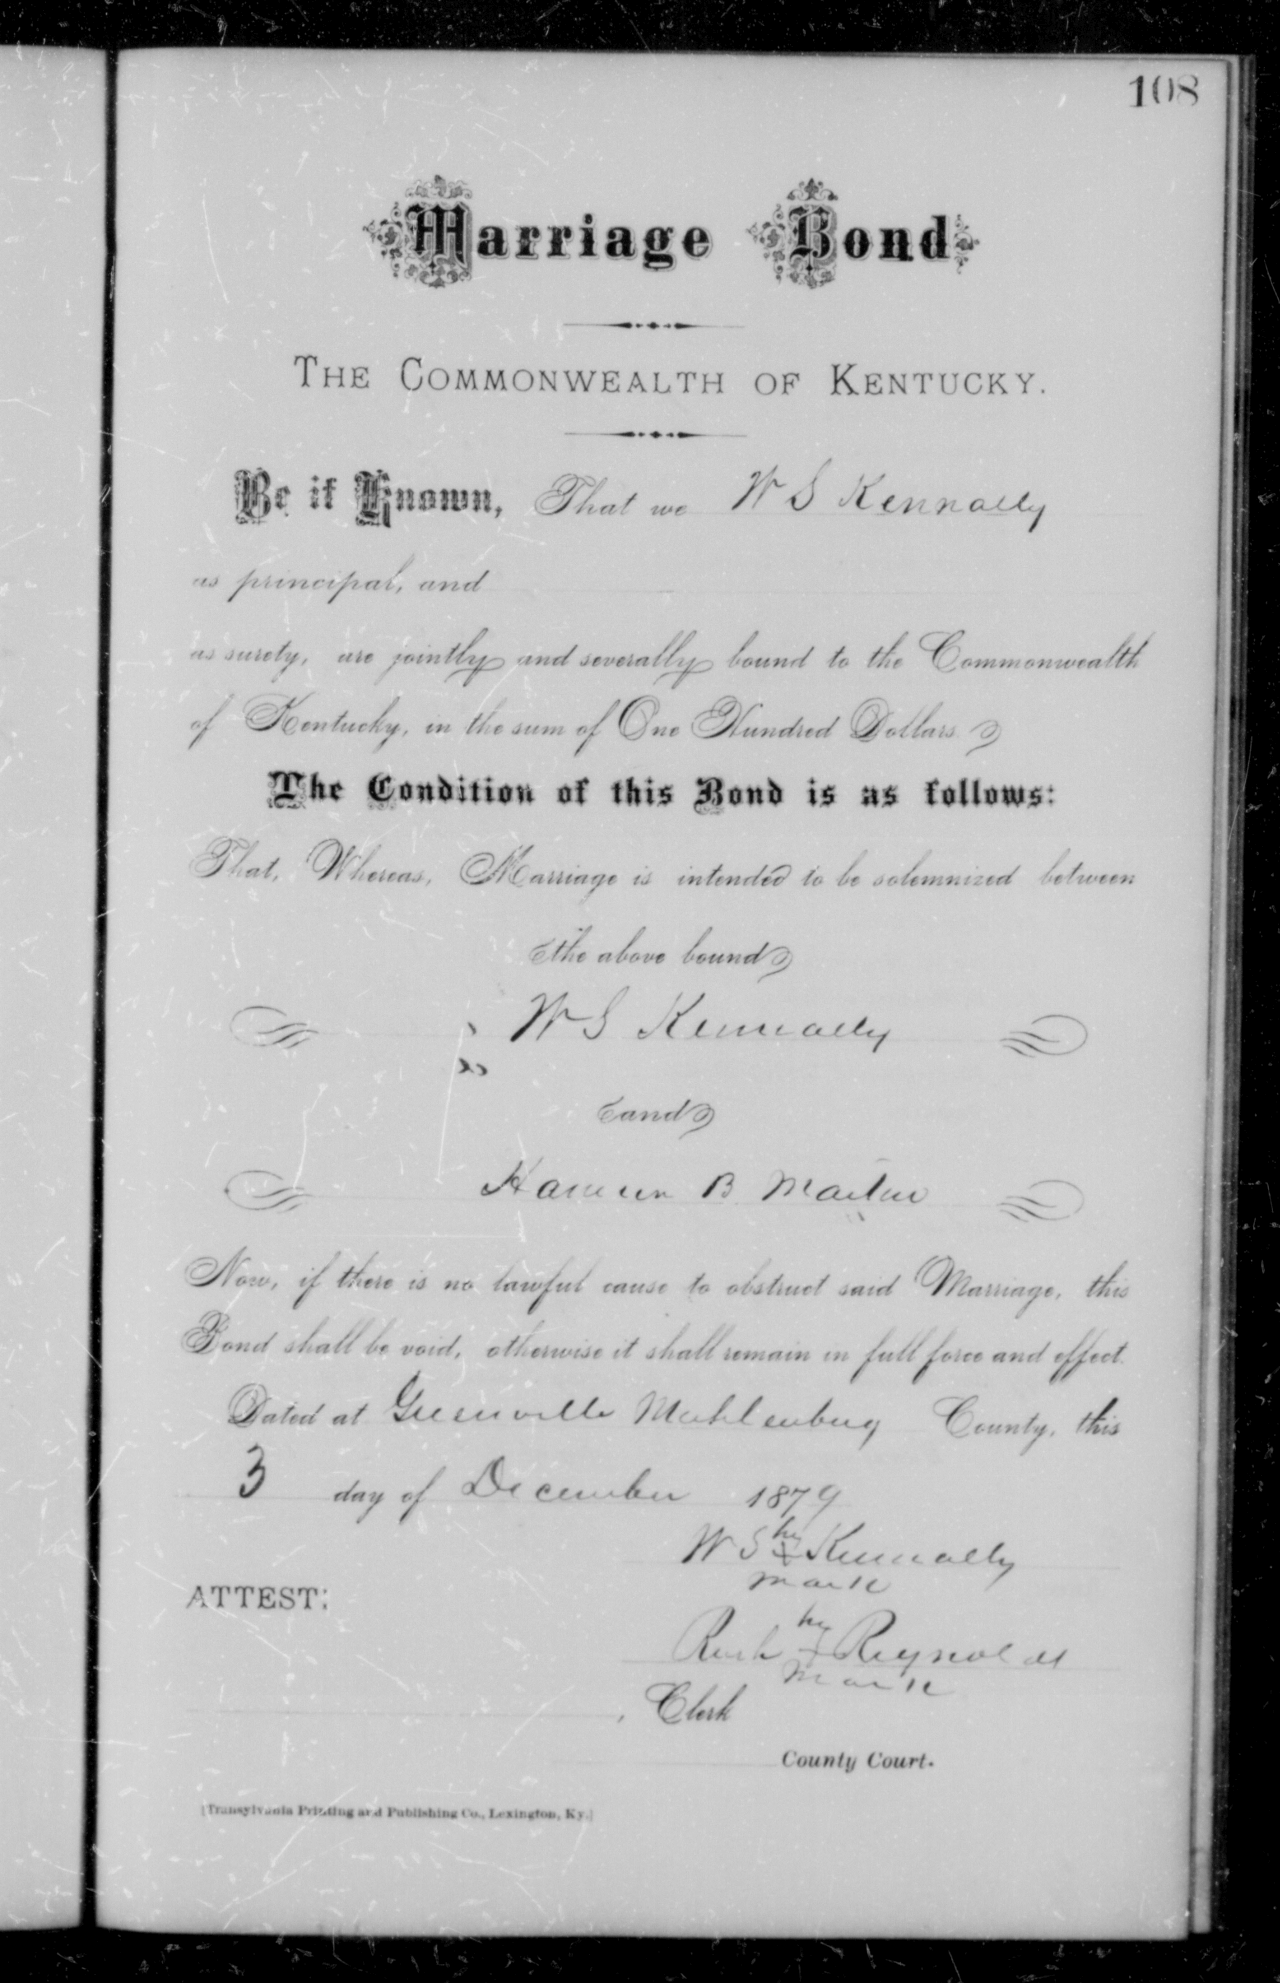 108
Marriage Bond
THE COMMONWEALTH OF KENTUCKY.
Be it Known, That we W S Kennally
as principal, and
as surety, are jointly and severally bound to the Commonwealth
of Kentucky, in the sum of One Hundred Dollars.
The Condition of this Bond is as follows:
That, Whereas, Marriage is intended to be solemnized between
the above bound
W S Kennally
and
B Martin
Now, if there is no lawful cause to obstruct said Marriage, this
Bond shall be void, otherwise it shall remain in full force and effect.
Dated at Greenville Muhlenburg County, this
3 day of December 1879
his
W S x Kennally
mark
ATTEST:
his
x Reynolds
mark
, Clerk
County Court.
[Transylvania Printing and Publishing Co., Lexington, Ky.]